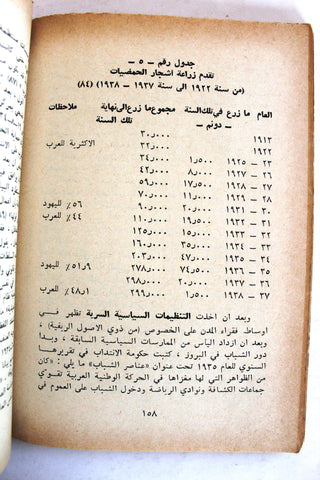 جدول رقم – ٥ –
تقدم زراعة اشجار الحمضيات
(من سنة ١٩٢٢ الى سنة ١٩٣٧ – ١٩٣٨) (٨٤)
العام ما زرع في تلك السنة مجموع ما زرع الى نهاية ملاحظات
– دونم – تلك السنة
١٩١٣ ٣٠٫٠٠٠
١٩٢٢ ٣٢٫٠٠٠ الاكثرية للعرب
٢٣ – ١٩٢٥ ١٫٥٠٠ ٣٤٫٠٠٠
٢٦ – ١٩٢٧ ٨٫٠٠٠ ٤٢٫٠٠٠
٢٧ – ١٩٢٨ ١١٫٥٠٠ ٥٧٫٠٠٠
٢٩ – ١٩٣٠ ١٩٫٥٠٠ ٧٠٫٠٠٠
٣٠ – ١٩٣١ ٢٠٫٠٠٠ ٩٠٫٠٠٠ ٥٦٪ لليهود
٣١ – ١٩٣٢ ١٩٫٥٠٠ ١١٠٫٠٠٠ ٤٤٪ للعرب
٣٢ – ١٩٣٣ ١٥٫٠٠٠ ١٢٥٫٠٠٠
٣٣ – ١٩٣٤ ٣٥٫٠٠٠ ١٦٠٫٠٠٠
٣٤ – ١٩٣٥ ٤٣٫٠٠٠ ٢٠٣٫٠٠٠
٣٦ – ١٩٣٦ ٧٤٫٥٠٠ ٢٧٨٫٠٠٠ ٥١٫٩٪ لليهود
٣٧ – ١٩٣٨ ١٫٥٠٠ ٢٩٩٫٠٠٠ ٤٨٫١٪ للعرب
وبعد ان اخذت التنظيمات السياسية السرية تظهر في
اوساط فقراء المدن على الخصوص (من ذوي الاصول الريفية) ،
وبعد ان ازداد اليأس من الممارسات السياسية السابقة ، وبدا
دور الشباب في البروز ، كتبت حكومة الانتداب في تقريرها
السنوي للعام ١٩٣٥ تحت عنوان «عناصر الشباب» «كان
من الظواهر التي لها مغزاها في الحركة الوطنية العربية تقوي
جماعات الكشافة ونوادي الرياضة ودخول الشباب على العموم في
١٥٨